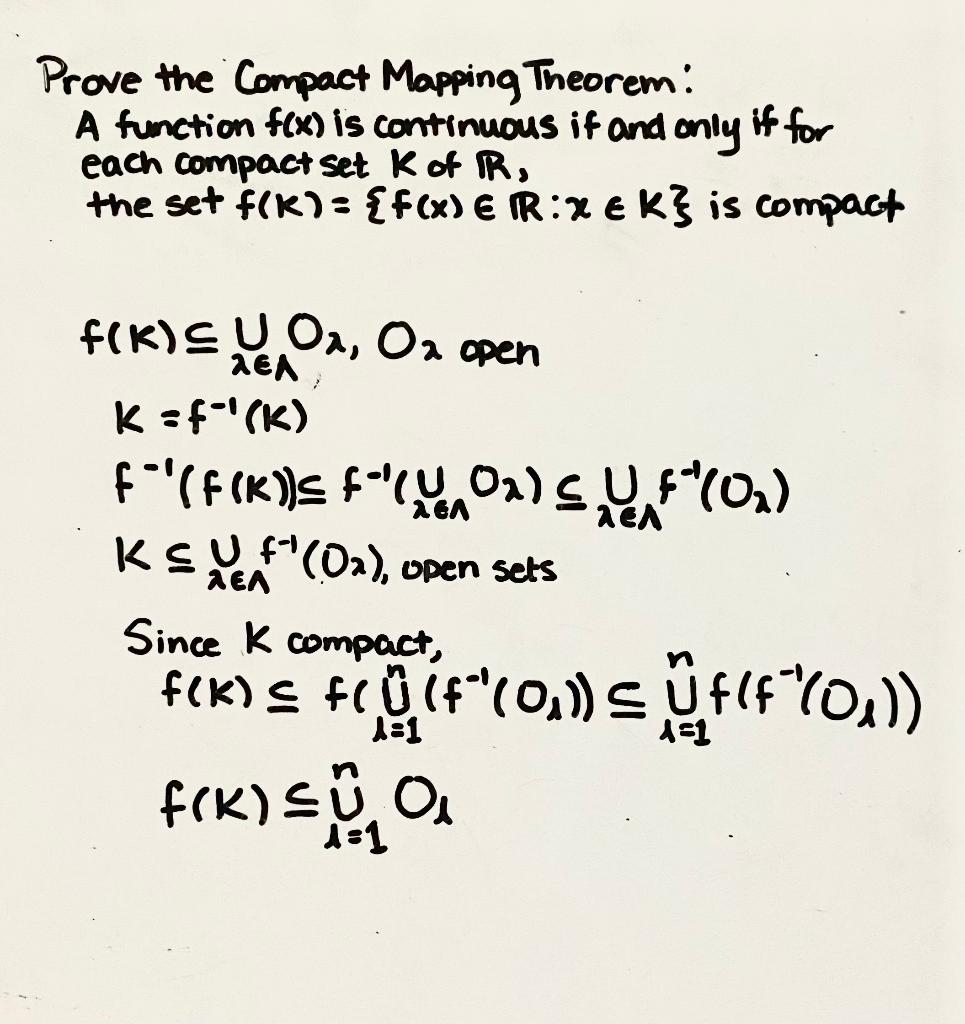 Prove the Compact Mapping Theorem:
A function f(x) is continuous if and only if for
each compact set K of ℝ,
the set f(K) = {f(x) ∈ ℝ : x ∈ K} is compact
f(K) ⊆ ⋃_{λ∈Λ} O_λ, O_λ open
K = f⁻¹(K)
f⁻¹(f(K)) ⊆ f⁻¹(⋃_{λ∈Λ} O_λ) ⊆ ⋃_{λ∈Λ} f⁻¹(O_λ)
K ⊆ ⋃_{λ∈Λ} f⁻¹(O_λ), open sets
Since K compact,
f(K) ⊆ f(⋃_{λ=1}^{n} (f⁻¹(O_λ)) ⊆ ⋃_{λ=1}^{n} f(f⁻¹(O_λ))
f(K) ⊆ ⋃_{λ=1}^{n} O_λ